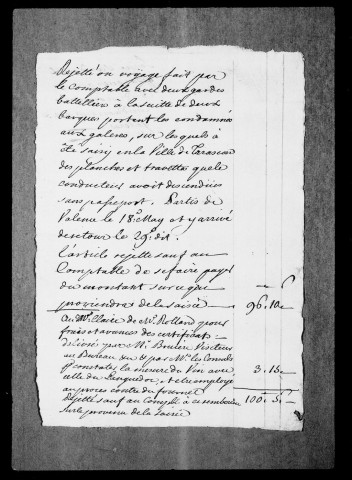 Rejetté un voyage fait par
le Comptable avec deux gardes
battellier à la suitte de deux
barques portent les condamnés
aux galeres, sur lesquels à
été saisy en la Ville de Tarascon
des planches et travettes que le
conducteur avoit descendües
sans passeport. Parties de
Valence le 18e. May et y arrivé
de retour le 29e. dit.
l'article rejetté sauf au
Comptable de se faire payé
du montant sur ce que
proviendra de la saisie 96. 10
au Mtre. Claire de Mr. Rolland pour
frais et avances des certificats
délivré par Mr. Visiteur
au Bureau du par Mrs. les Consuls
constater la mesure du Vin avec 3. 15
celle du Languedoc, et employé
au procès contre du
Rejetté sauf au Compt. à 100. 5
sur le provenu de la saisie